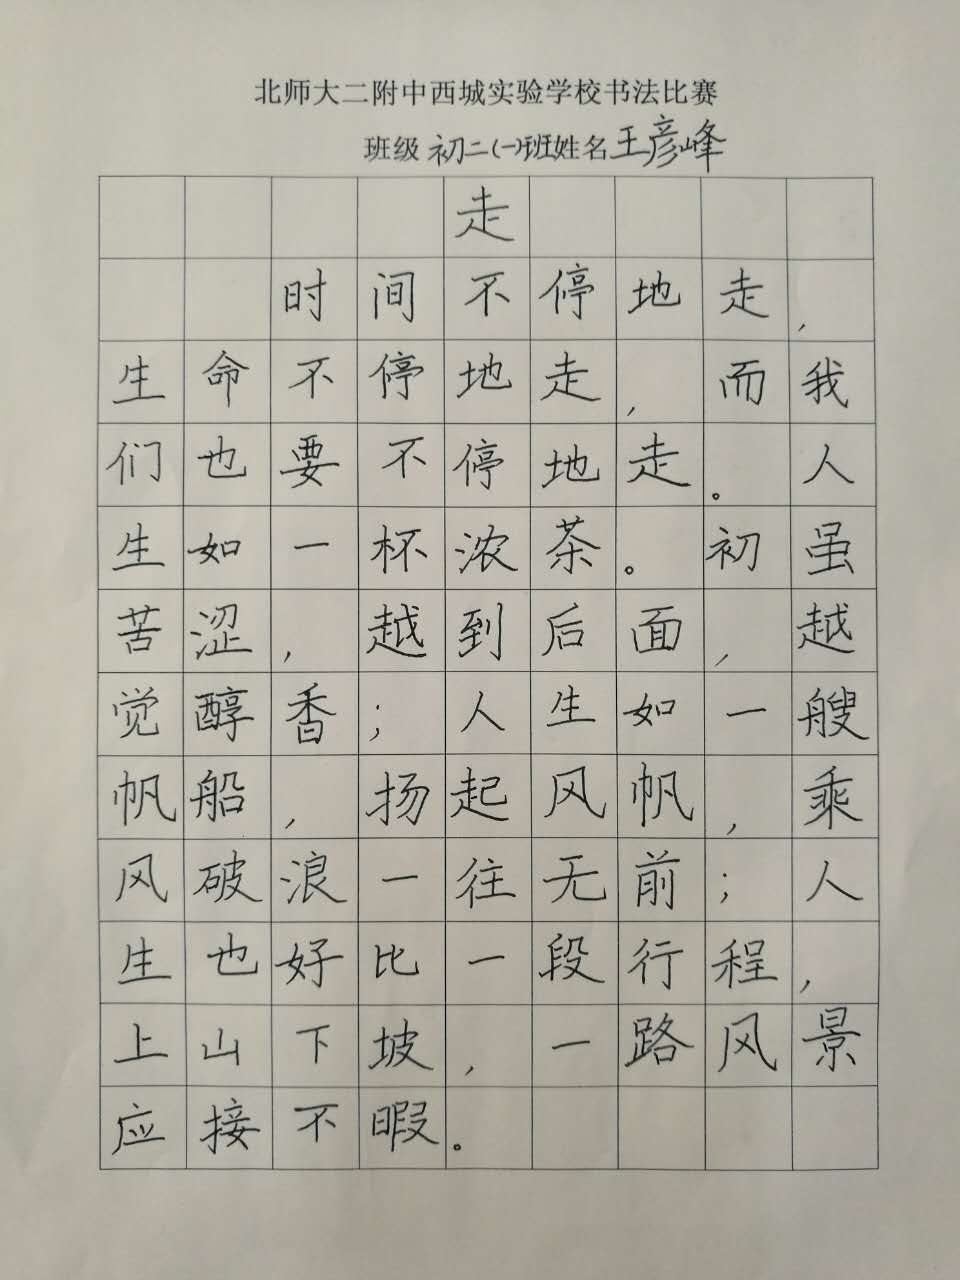 北师大二附中西城实验学校书法比赛
班级 初二(一)班姓名王彦峰
走
时间不停地走，
生命不停地走，而我
们也要不停地走。人
生如一杯浓茶。初虽
苦涩，越到后面，越
觉醇香；人生如一艘
帆船，扬起风帆，乘
风破浪一往无前；人
生也好比一段行程，
上山下坡，一路风景
应接不暇。